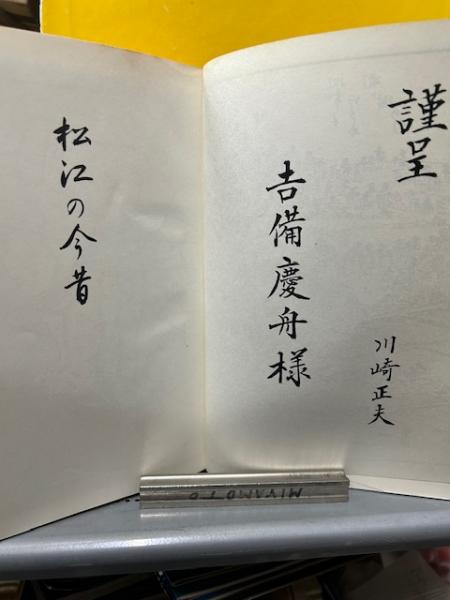 謹呈
川崎正夫
吉備慶舟様
松江の今昔
MIYAMOTO